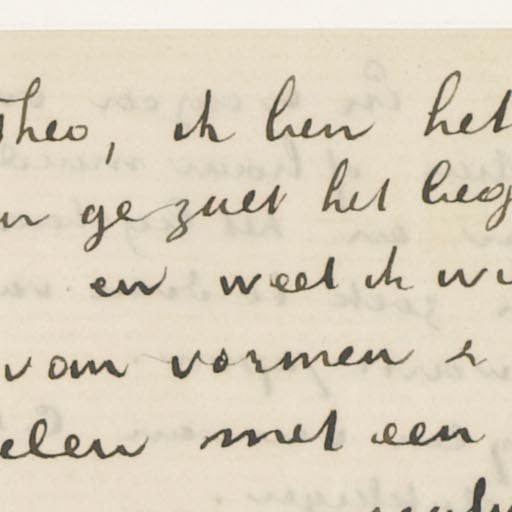 Theo, ik ben het
ge zult het beg
en weet ik wi
van vormen &
elen met een